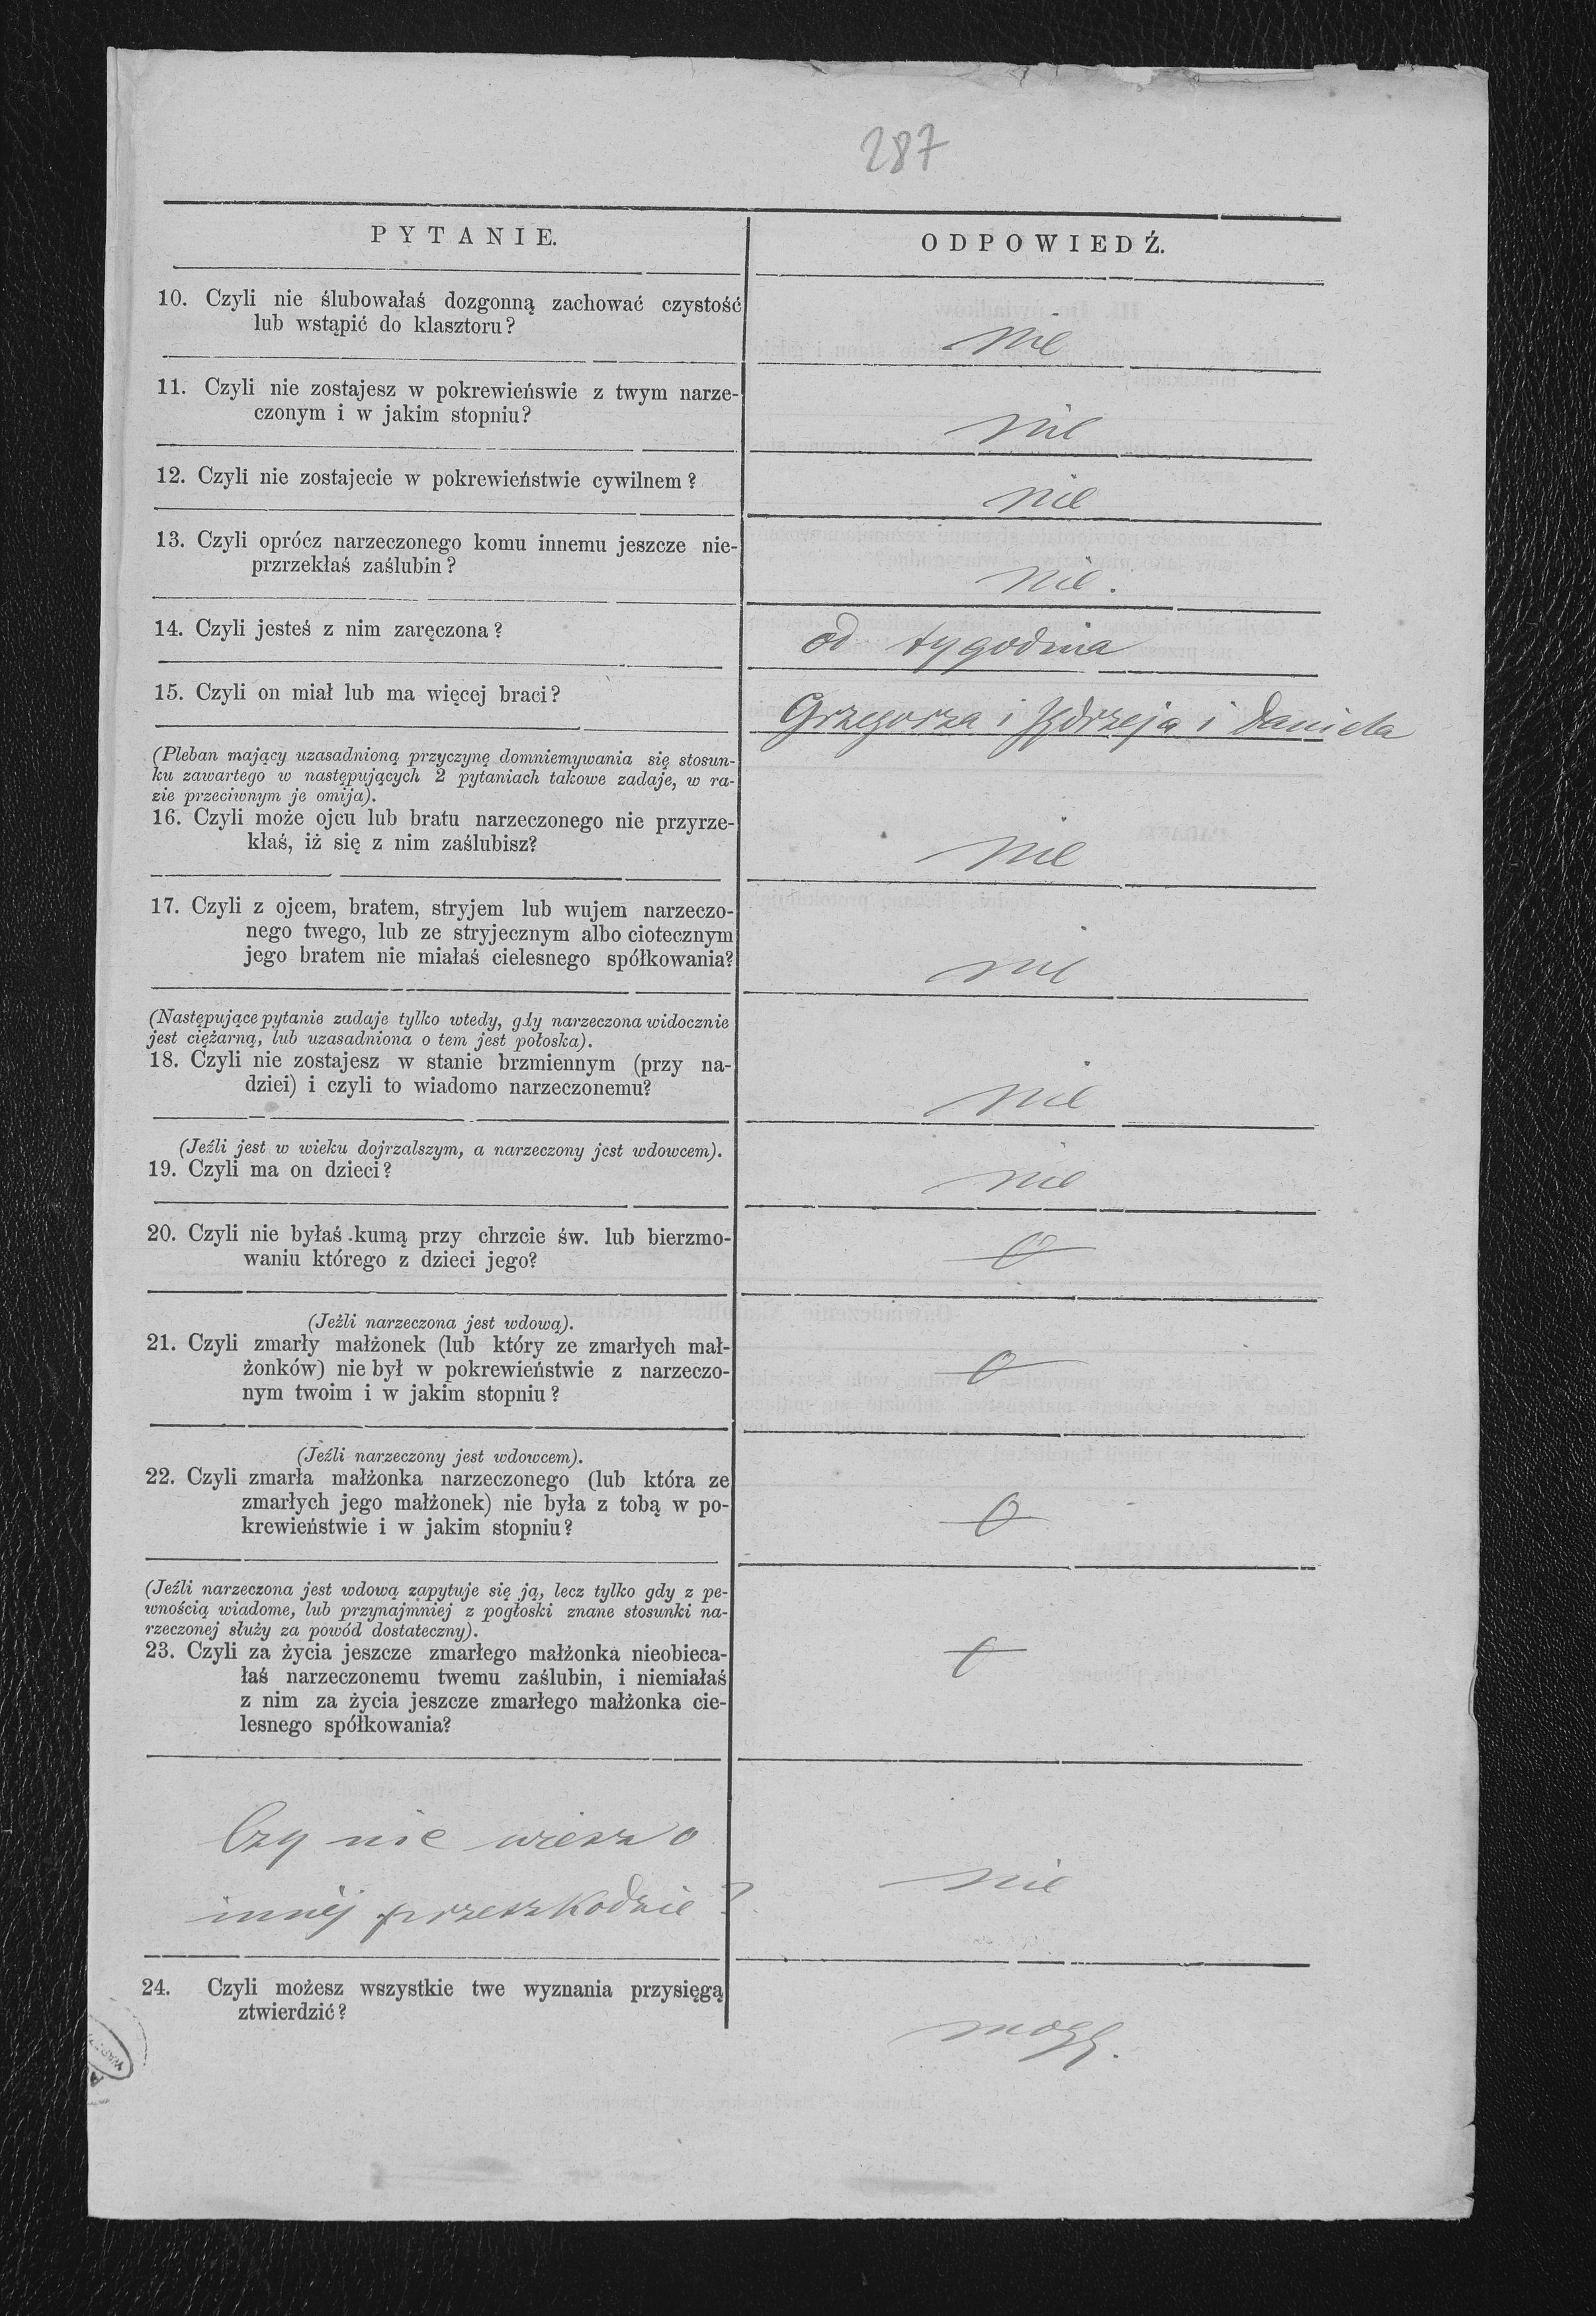 287
PYTANIE.
ODPOWIEDŹ.
10. Czyli nie ślubowałaś dozgonną zachować czystość
lub wstąpić do klasztoru?
nie
11. Czyli nie zostajesz w pokrewieńswie z twym narze-
czonym i w jakim stopniu?
nie
12. Czyli nie zostajecie w pokrewieństwie cywilnem?
nie
13. Czyli oprócz narzeczonego komu innemu jeszcze nie-
przrzekłaś zaślubin?
nie.
14. Czyli jesteś z nim zaręczona?
od tygodnia
15. Czyli on miał lub ma więcej braci?
Grzegorza i Jędrzeja i Daniela
(Pleban mający uzasadnioną przyczynę domniemywania się stosun-
ku zawartego w następujących 2 pytaniach takowe zadaje, w ra-
zie przeciwnym je omija).
16. Czyli może ojcu lub bratu narzeczonego nie przyrze-
kłaś, iż się z nim zaślubisz?
nie
17. Czyli z ojcem, bratem, stryjem lub wujem narzeczo-
nego twego, lub ze stryjecznym albo ciotecznym
jego bratem nie miałaś cielesnego spółkowania?
nie
(Następujące pytanie zadaje tylko wtedy, gdy narzeczona widocznie
jest ciężarną, lub uzasadniona o tem jest potoska).
18. Czyli nie zostajesz w stanie brzmiennym (przy na-
dziei) i czyli to wiadomo narzeczonemu?
nie
(Jeźli jest w wieku dojrzalszym, a narzeczony jest wdowcem).
19. Czyli ma on dzieci?
nie
20. Czyli nie byłaś kumą przy chrzcie św. lub bierzmo-
waniu którego z dzieci jego?
0
(Jeźli narzeczona jest wdową).
21. Czyli zmarły małżonek (lub który ze zmarłych mał-
żonków) nie był w pokrewieństwie z narzeczo-
nym twoim i w jakim stopniu?
0
(Jeźli narzeczony jest wdowcem).
22. Czyli zmarła małżonka narzeczonego (lub która ze
zmarłych jego małżonek) nie była z tobą w po-
krewieństwie i w jakim stopniu?
0
(Jeźli narzeczona jest wdową zapytuje się ją, lecz tylko gdy z pe-
wnością wiadome, lub przynajmniej z pogłoski znane stosunki na-
rzeczonej służy za powód dostateczny).
23. Czyli za życia jeszcze zmarłego małżonka nieobieca-
łaś narzeczonemu twemu zaślubin, i niemiałaś
z nim za życia jeszcze zmarłego małżonka cie-
lesnego spółkowania?
0
Czy nie wiesz o
innej przeszkodzie?
nie
24. Czyli możesz wszystkie twe wyznania przysięgą
ztwierdzić?
mogę.